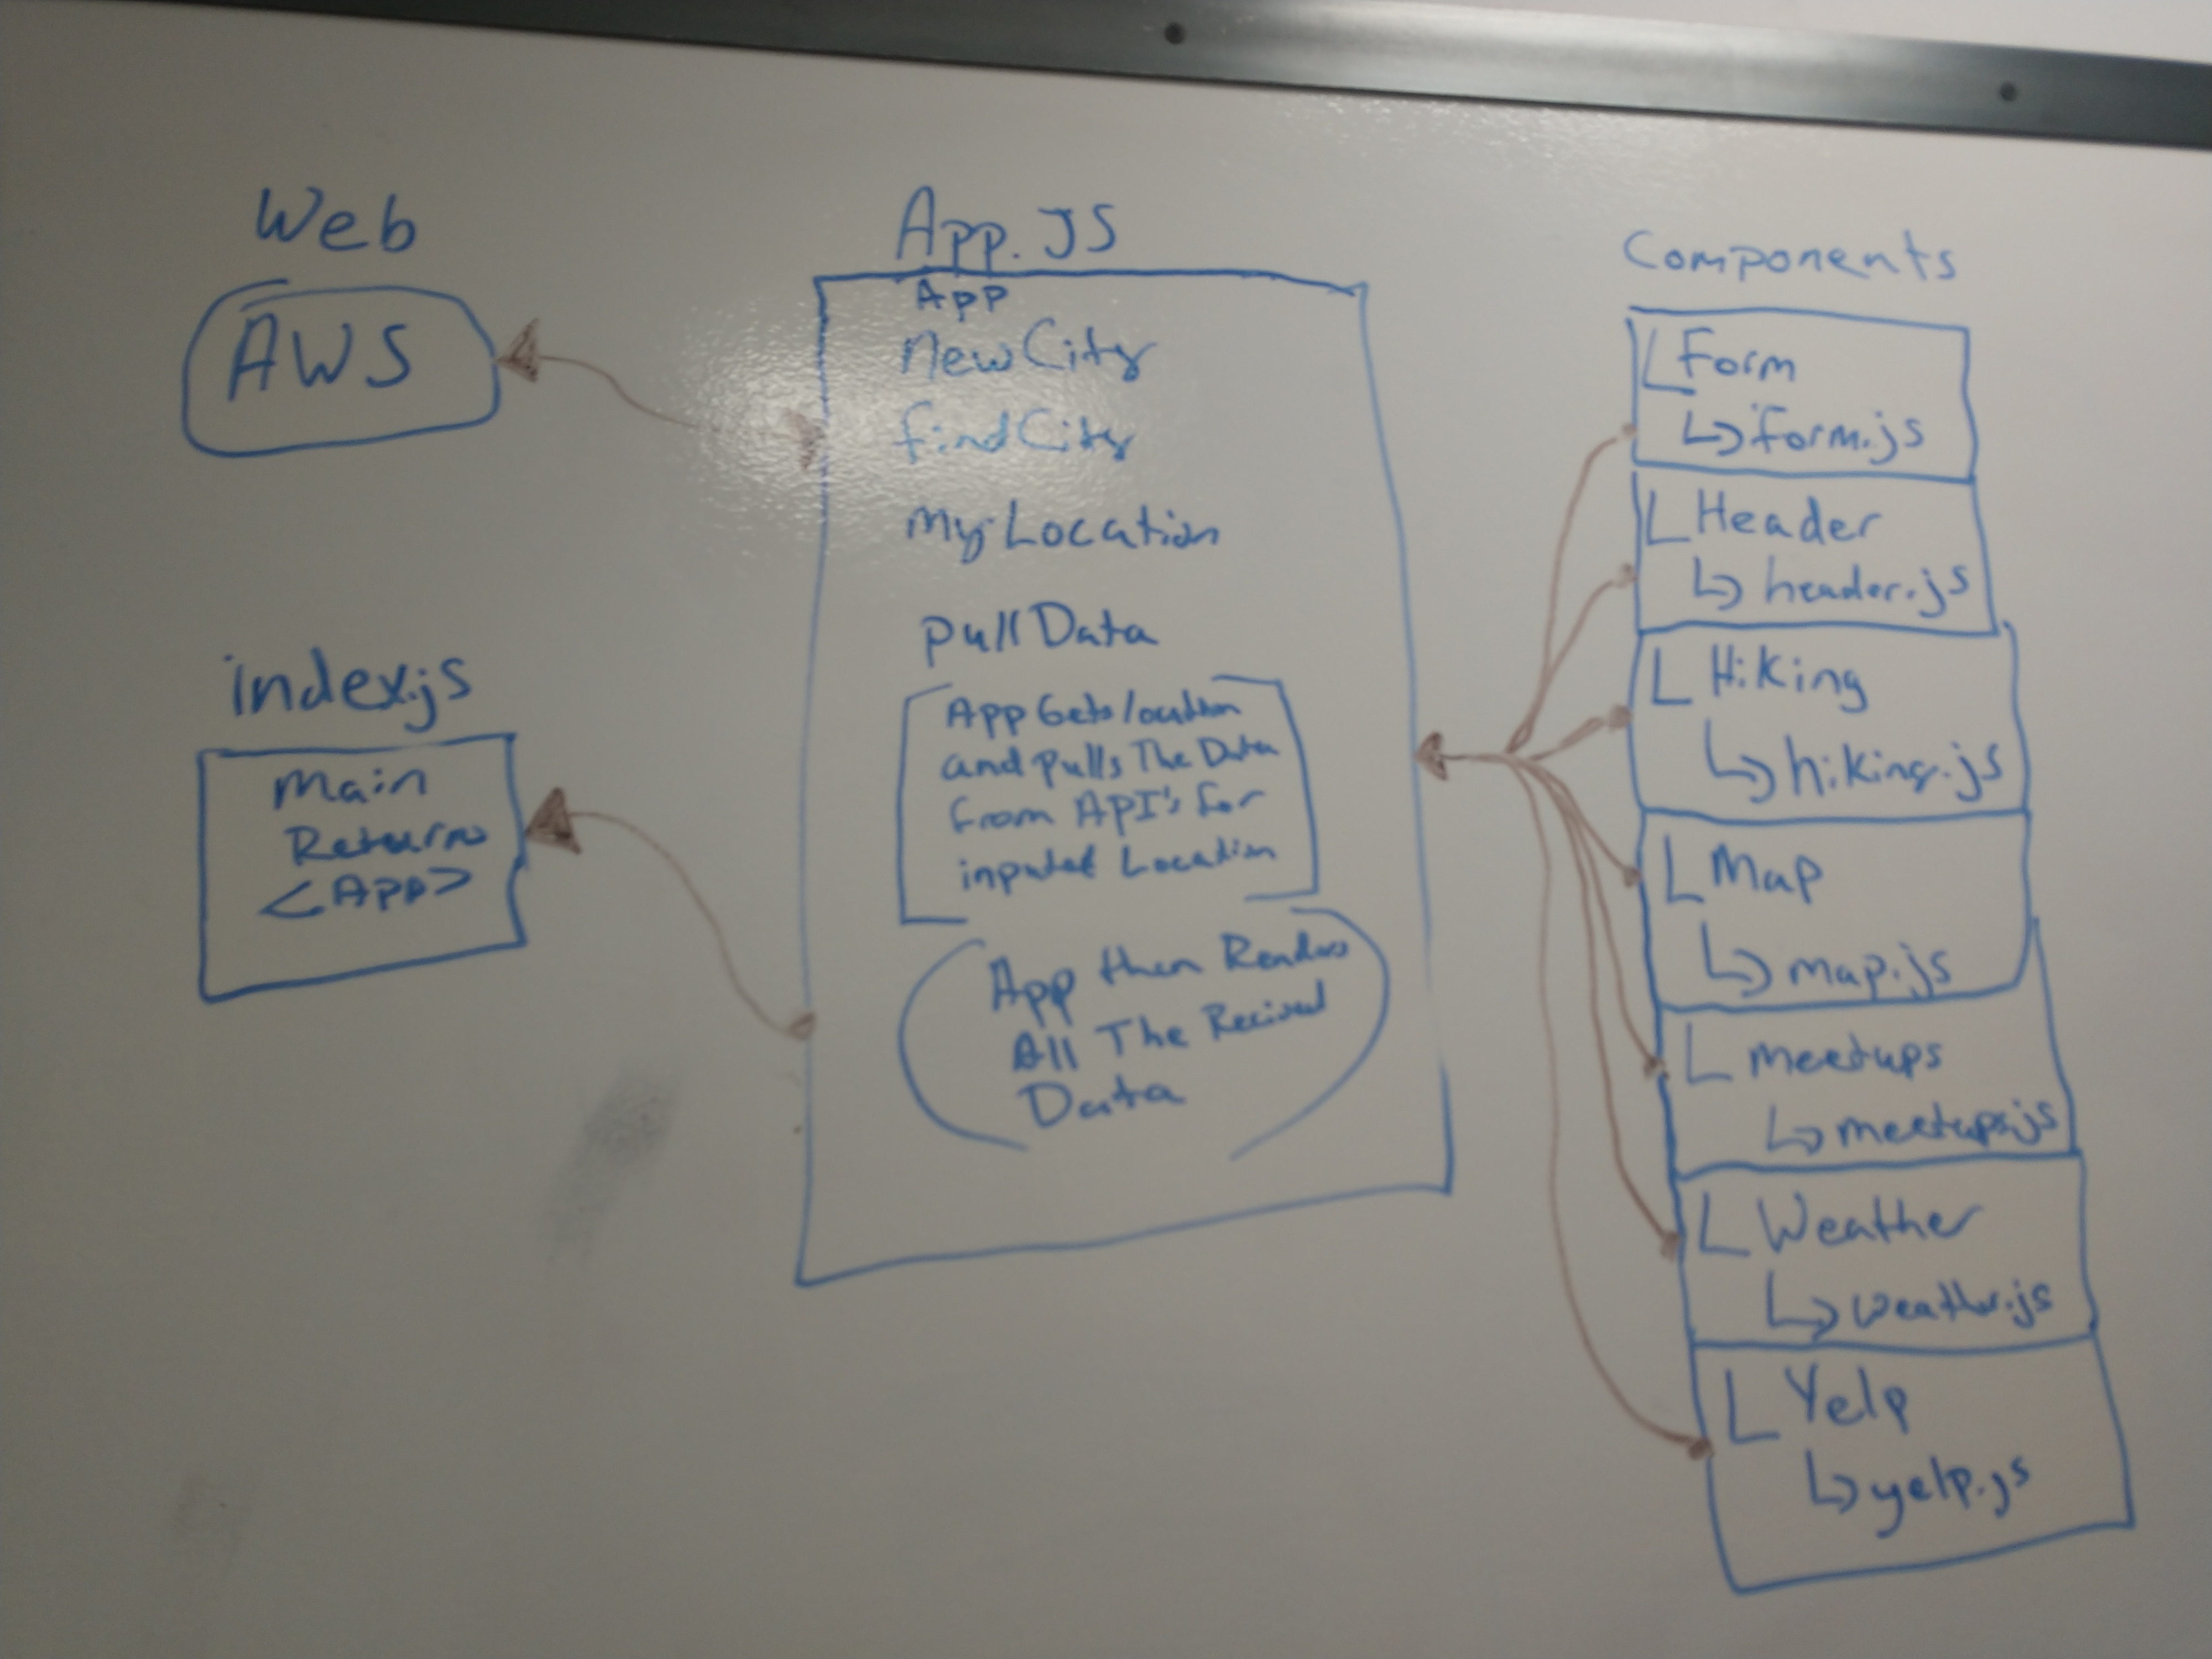 Web
AWS
index.js
Main
Returns
<App>
App.JS
App
NewCity
findCity
My Location
pull Data
App Gets location
and pulls The Data
from API's for
inputed Location
App then Renders
All The Recived
Data
Components
Form
form.js
Header
header.js
Hiking
hiking.js
Map
map.js
meetups
meetups.js
Weather
weather.js
Yelp
yelp.js